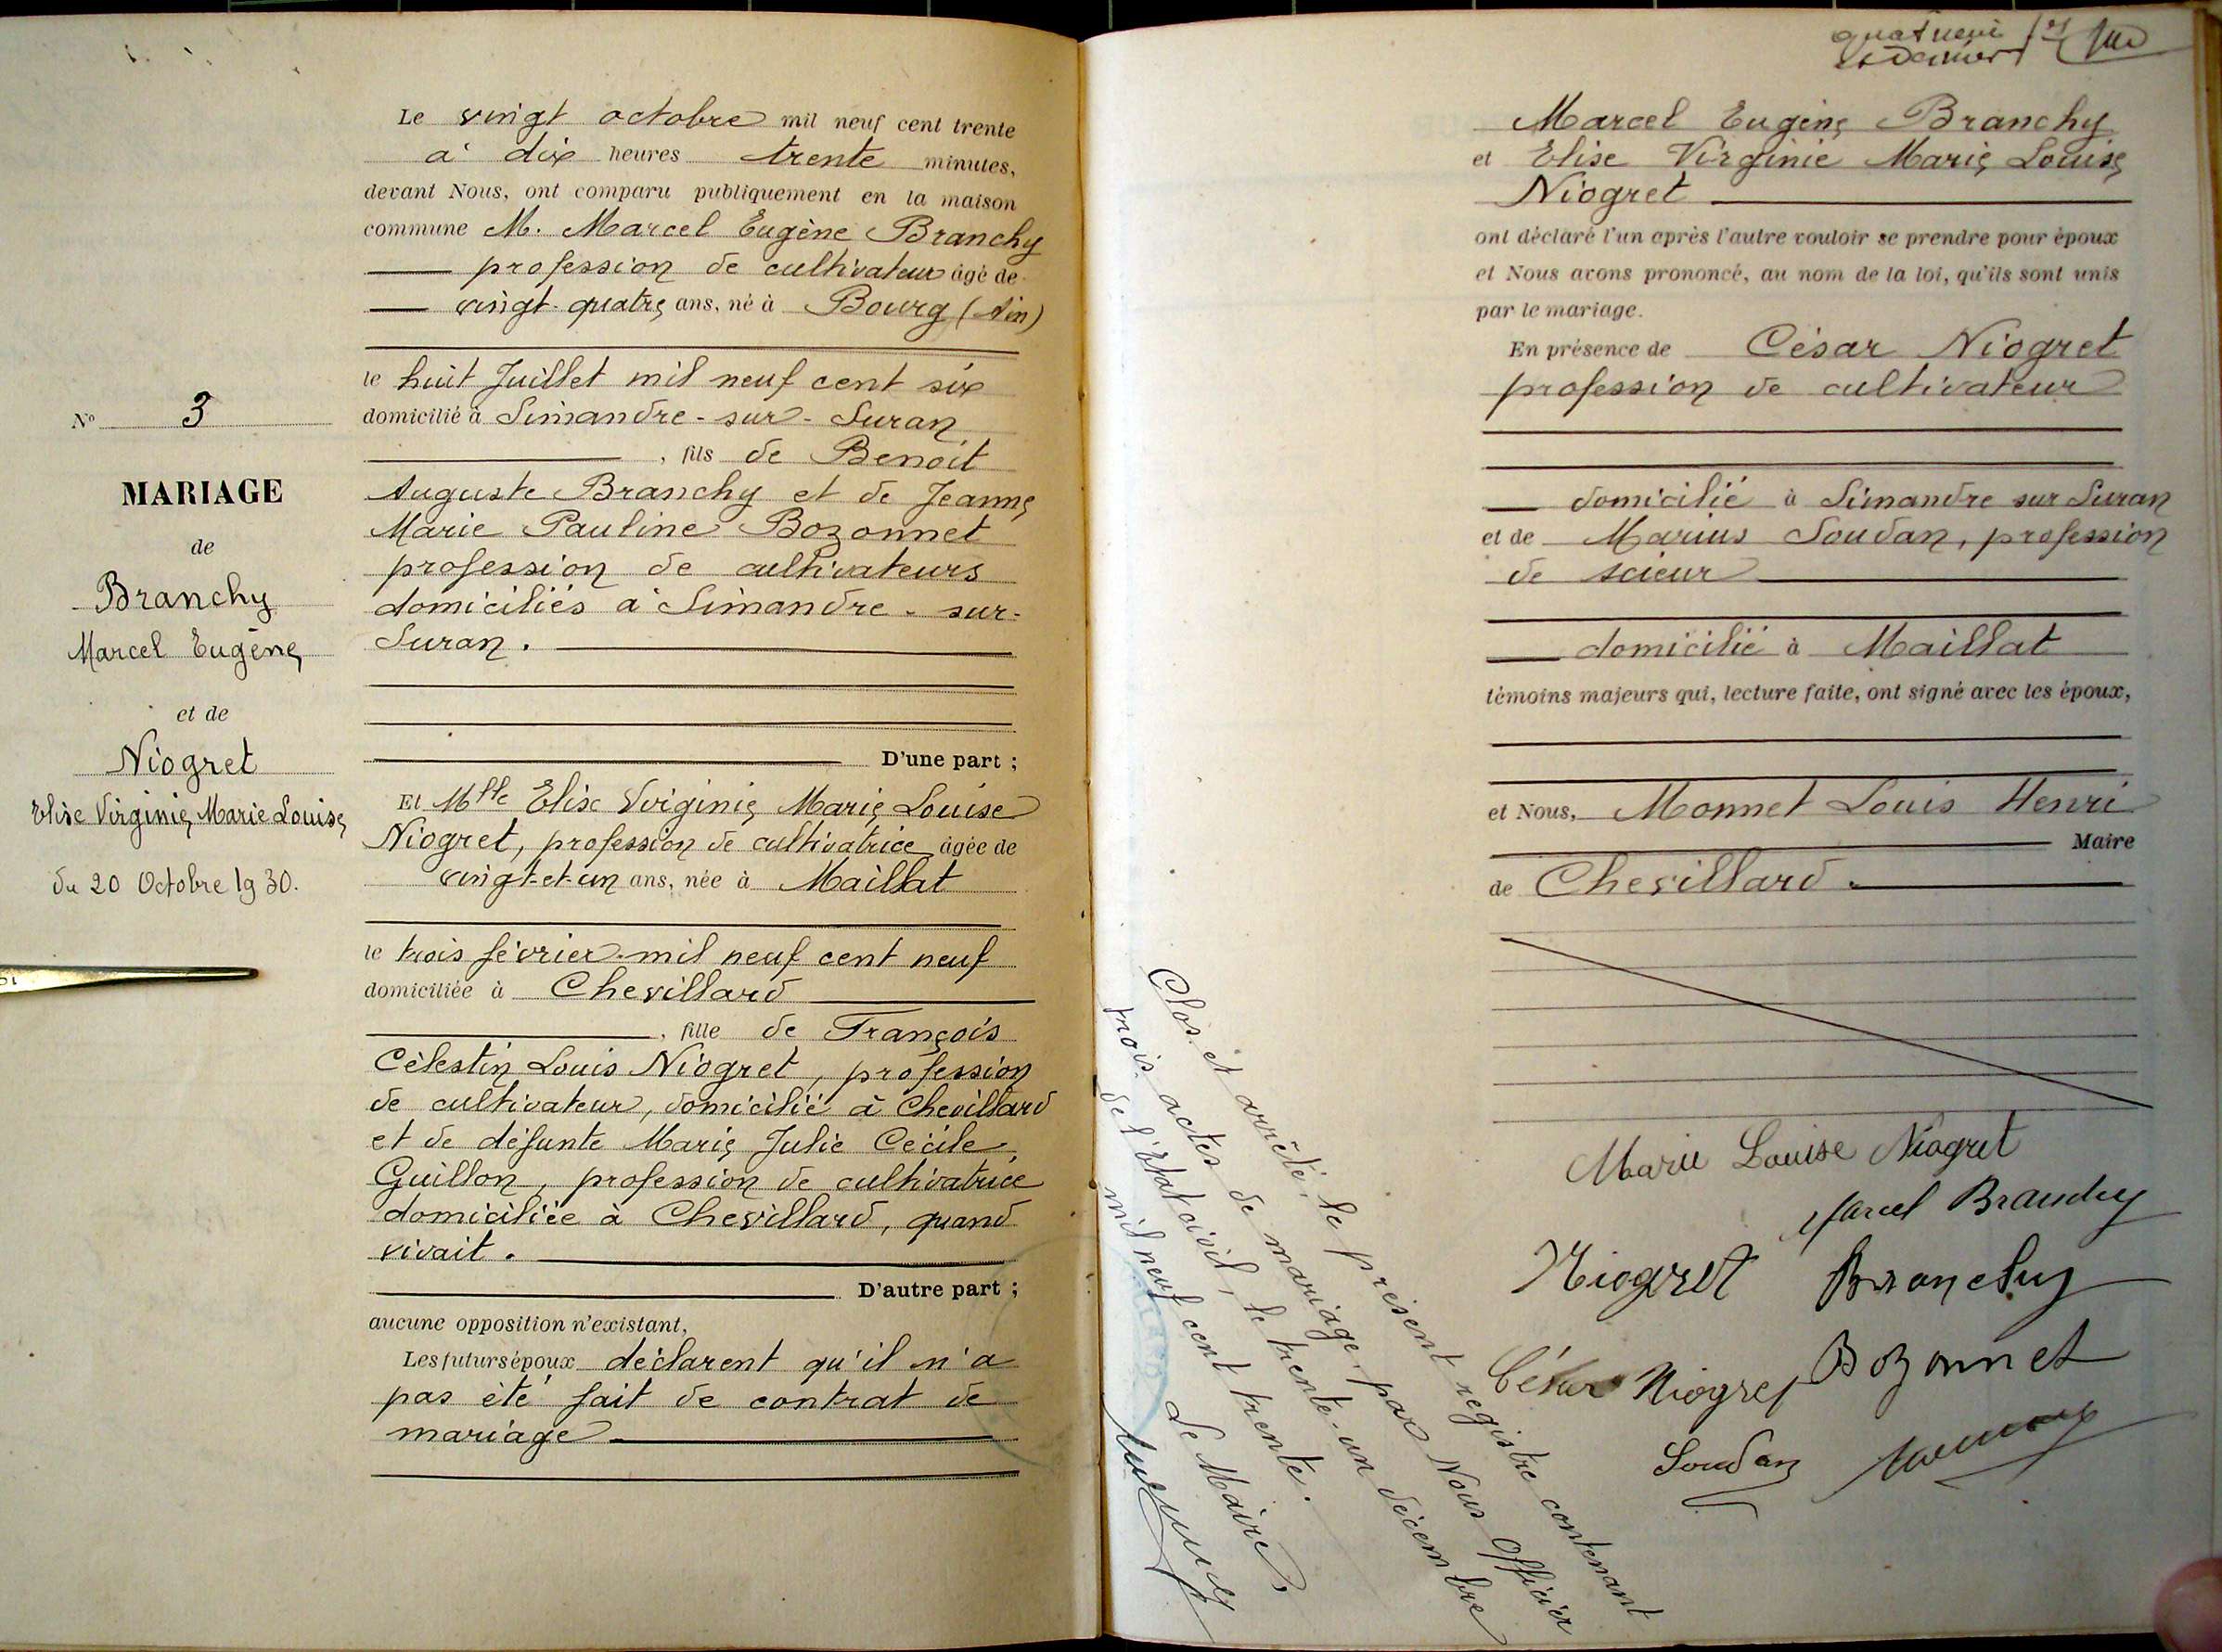 Le vingt octobre mil neuf cent trente
à dix heures trente minutes,
devant Nous, ont comparu publiquement en la maison
commune M. Marcel Eugène Branchy
profession de cultivateur âgé de
vingt-quatre ans, né à Bourg (Ain)
le huit Juillet mil neuf cent six
domicilié à Simandre-sur-Suran
, fils de Benoit
Auguste Branchy et de Jeanne
Marie Pauline Bozonnet
profession de cultivateurs
domiciliés à Simandre-sur-
Suran.
D'une part ;
Et Mlle Elise Virginie Marie Louise
Niogret, profession de cultivatrice âgée de
vingt-et-un ans, née à Maillat
le trois février mil neuf cent neuf
domiciliée à Chevillard
, fille de François
Célestin Louis Niogret, profession
de cultivateur, domicilié à Chevillard
et de défunte Marie Julie Cécile
Guillon, profession de cultivatrice
domiciliée à Chevillard, quand
vivait.
D'autre part ;
aucune opposition n'existant,
Les futurs époux déclarent qu'il n'a
pas été fait de contrat de
mariage
No 3
MARIAGE
de
Branchy
Marcel Eugène
et de
Niogret
Elise Virginie Marie Louise
du 20 Octobre 1930.
et dernier
Marcel Eugène Branchy
et Elise Virginie Marie Louise
Niogret
ont déclaré l'un après l'autre vouloir se prendre pour époux
et Nous avons prononcé, au nom de la loi, qu'ils sont unis
par le mariage.
En présence de César Niogret
profession de cultivateur
domicilié à Simandre sur Suran
et de Marius Soudan, profession
de scieur
domicilié à Maillat
témoins majeurs qui, lecture faite, ont signé avec les époux,
et Nous, Monnet Louis Henri
Maire
de Chevillard.
Marie Louise Niogret
Marcel Branchy
Niogret Branchy
César Niogret Bozonnet
Soudan
Clos et arrêté, le présent registre contenant
trois actes de mariage, par Nous Officier
de l'Etat civil, le trente-un décembre
mil neuf cent trente.
Le Maire,